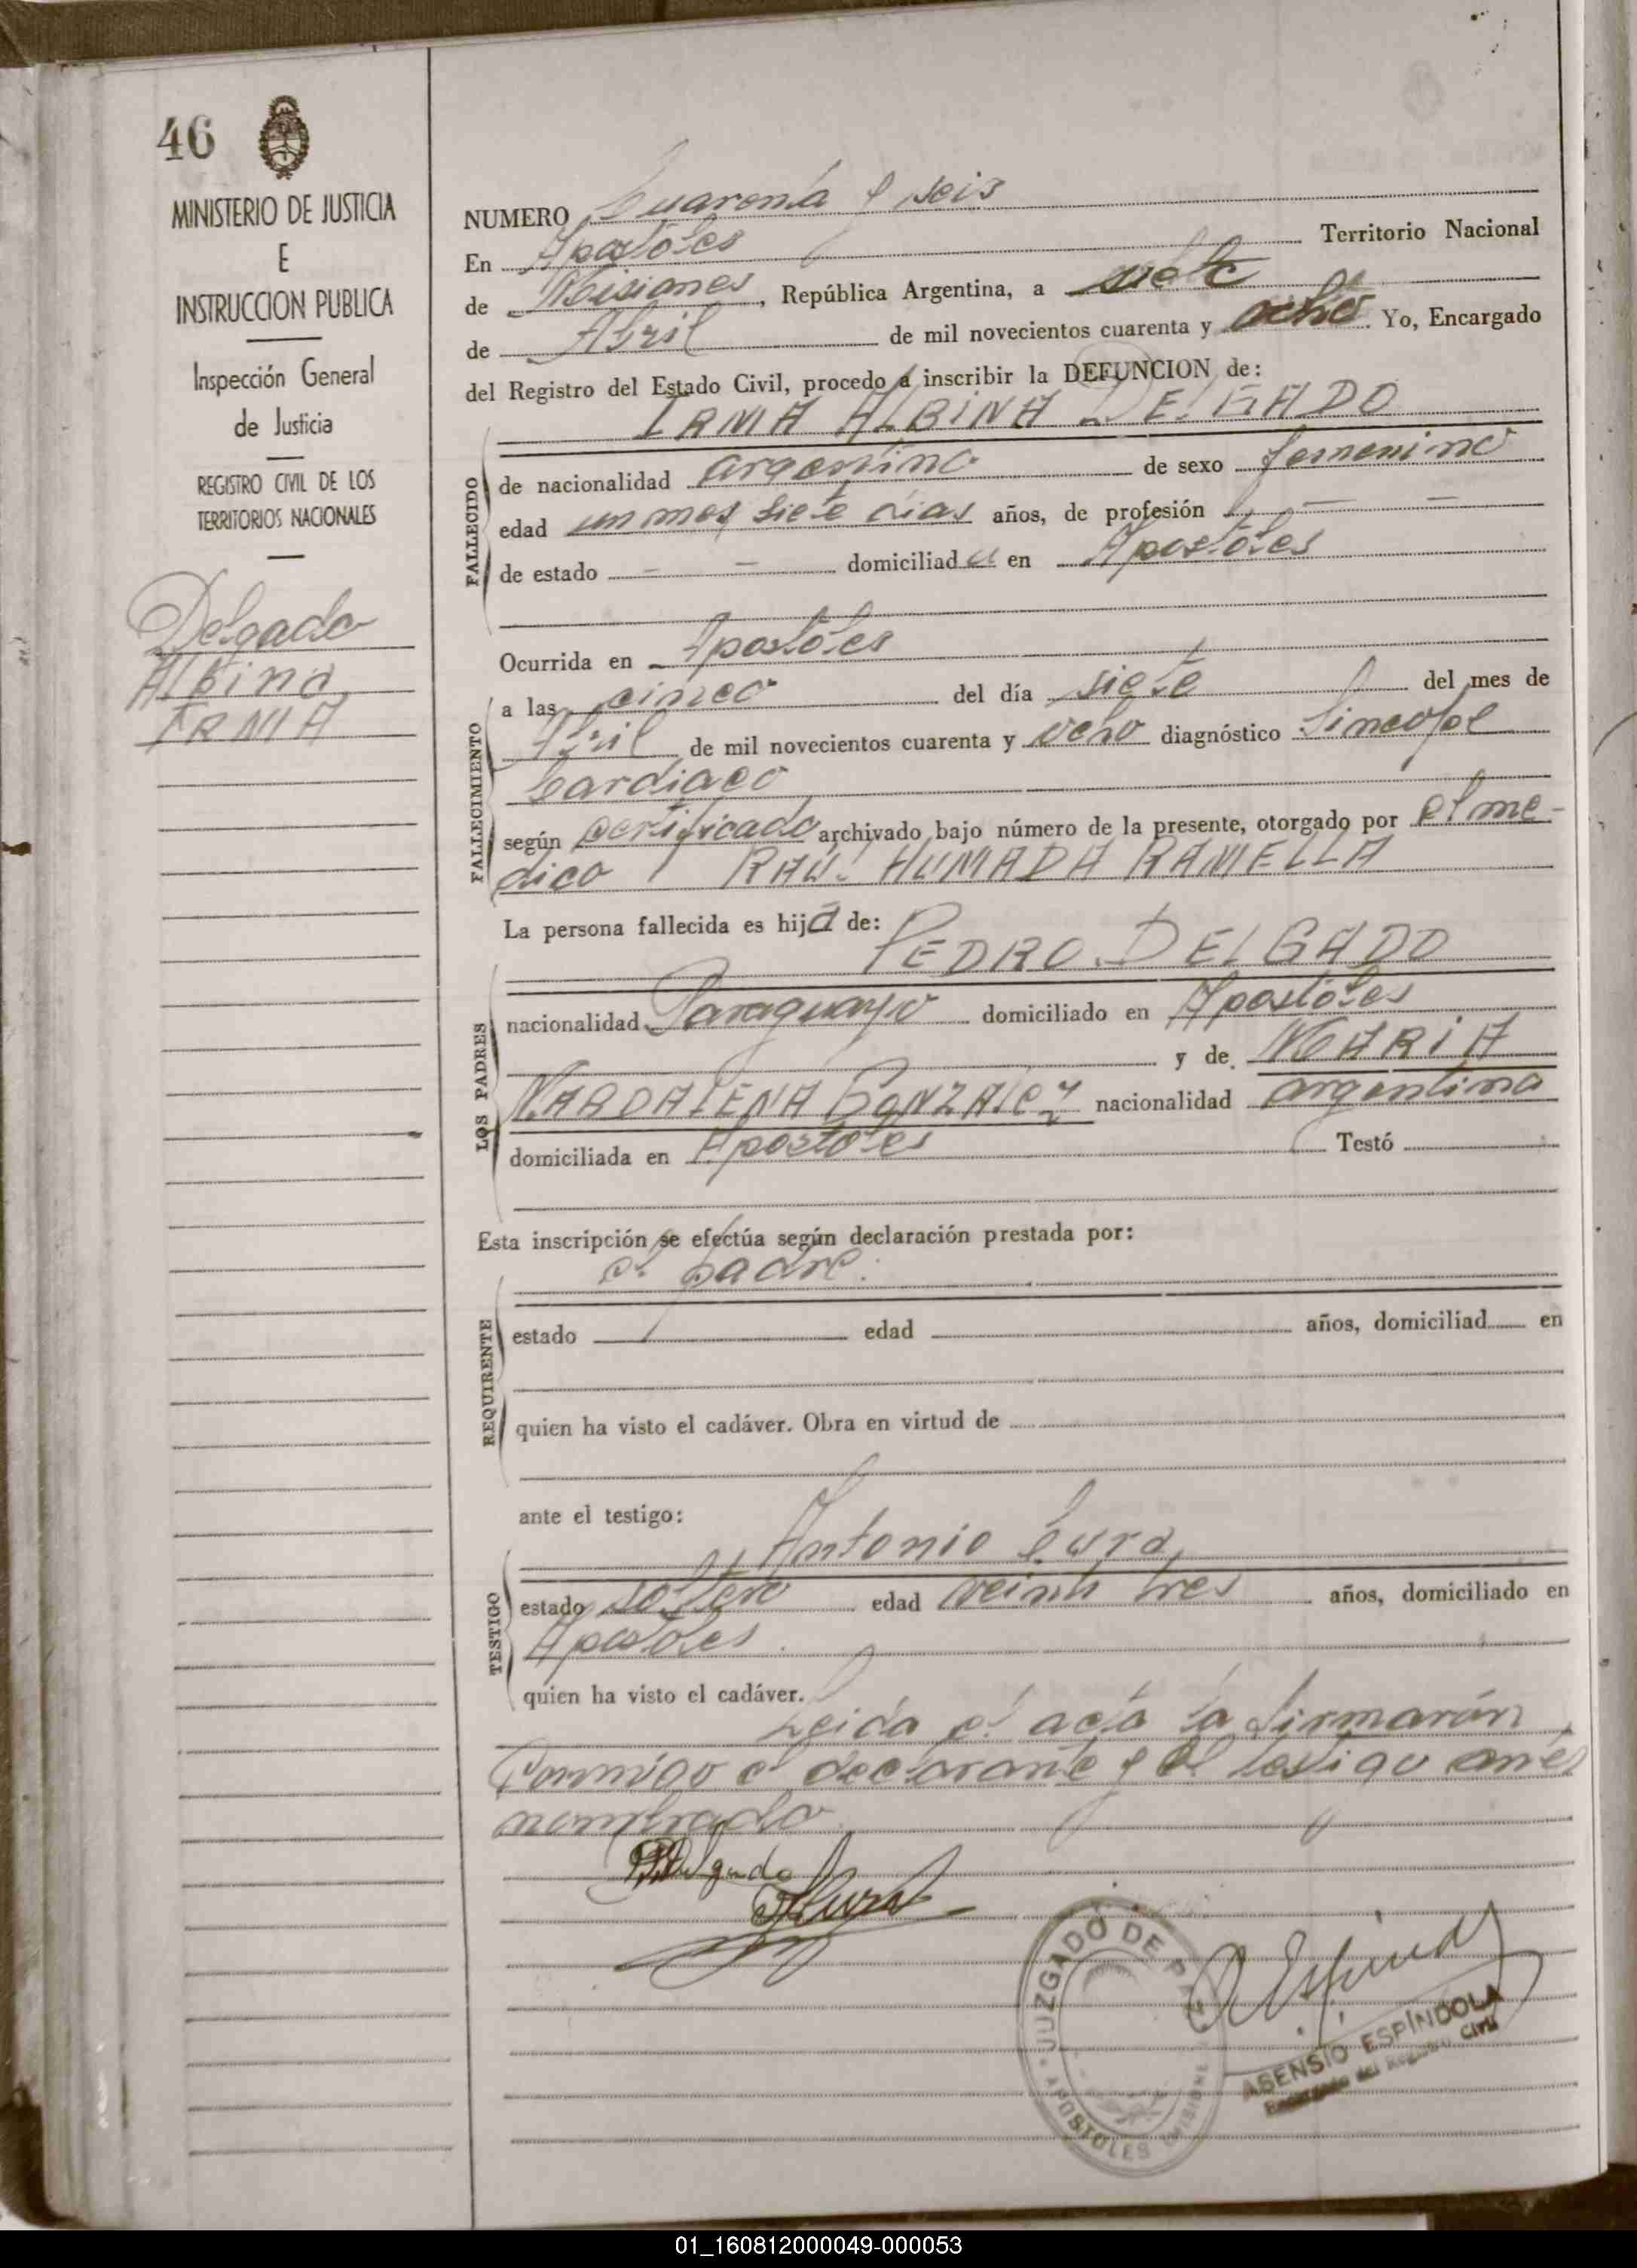 46
MINISTERIO DE JUSTICIA
E
INSTRUCCION PUBLICA
Inspección General
de Justicia
REGISTRO CIVIL DE LOS
TERRITORIOS NACIONALES
Delgado
Albina
IRMA
NUMERO Cuarenta y seis
En Apostoles Territorio Nacional
de Misiones, República Argentina, a siete
de Abril de mil novecientos cuarenta y ocho. Yo, Encargado
del Registro del Estado Civil, procedo a inscribir la DEFUNCION de:
IRMA ALBINA DELGADO
FALLECIDO
de nacionalidad argentina de sexo femenino
edad un mes siete dias años, de profesión - -
de estado - - domiciliada en Apostoles
FALLECIMIENTO
Ocurrida en Apostoles
a las cinco del día siete del mes de
Abril de mil novecientos cuarenta y ocho diagnóstico Sincope
Cardiaco
según certificado archivado bajo número de la presente, otorgado por el me-
dico RAUL HUMADA RAMELLA
La persona fallecida es hija de:
PEDRO DELGADO
LOS PADRES
nacionalidad Paraguayo domiciliado en Apostoles
y de MARIA
MAGDALENA GONZALez nacionalidad argentina
domiciliada en Apostoles Testó
Esta inscripción se efectúa según declaración prestada por:
el padre.
REQUIRENTE
estado edad años, domiciliad en
quien ha visto el cadáver. Obra en virtud de
ante el testigo:
Antonio Cura
TESTIGO
estado soltero edad veinti tres años, domiciliado en
Apostoles.
quien ha visto el cadáver.
Leida el acta la firmarán
conmigo el declarante y el testigo antes
nombrado.
PDelgado
ACura
JUZGADO DE PAZ
APOSTOLES MISIONES
AEspindola
ASENSIO ESPÍNDOLA
Encargado del Registro Civil
01_160812000049-000053